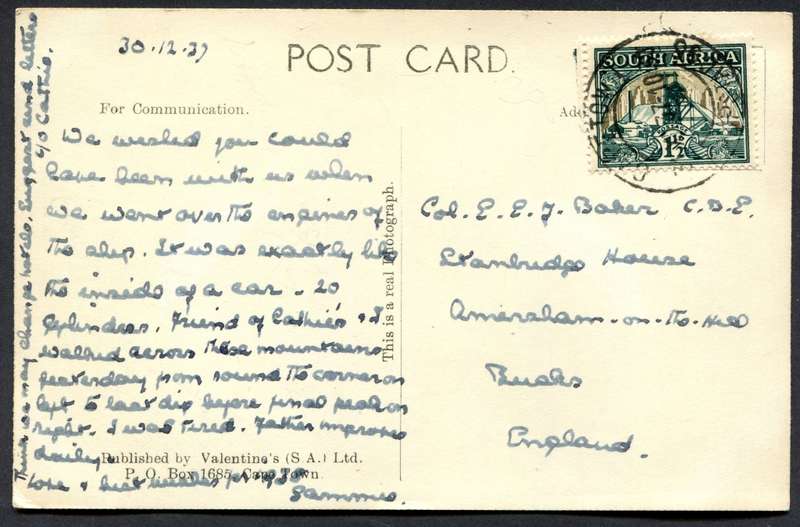 30.12.39
POST CARD.
For Communication.
Ad
SOUTH AFRICA
POSTAGE
1½
We wished you could
have been with us when
we went over the engines of
the ship. It was exactly like
the inside of a car - 20
cylinders. Friend of Cathie's & I
walked across these mountains
yesterday from round the corner on
left to last dip before final peak on
right. I was tired. Father improves
daily.
Love & best wishes for
Sammie.
Think we may change hotels. Suggest send letters
c/o Cathie.
This is a real Photograph.
Published by Valentine's (S A.) Ltd.
P. O. Box 1685, Cape Town.
Col. E. E. F. Baker C.B.E.
Stanbridge House
Amersham-on-the-Hill
Bucks
England.